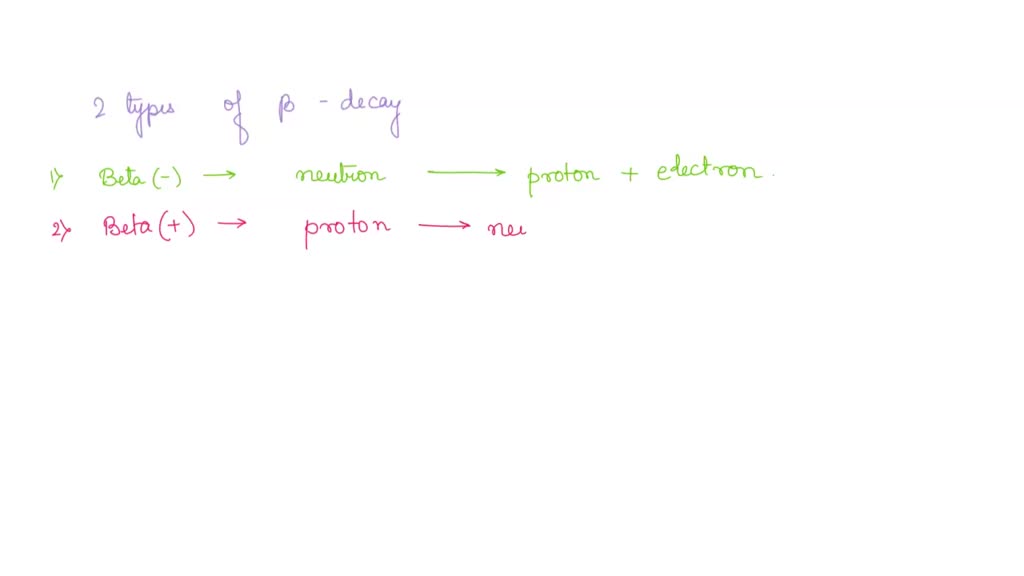 2 types of β - decay
1) Beta (-) → neutron → proton + electron.
2) Beta (+) → proton → neu